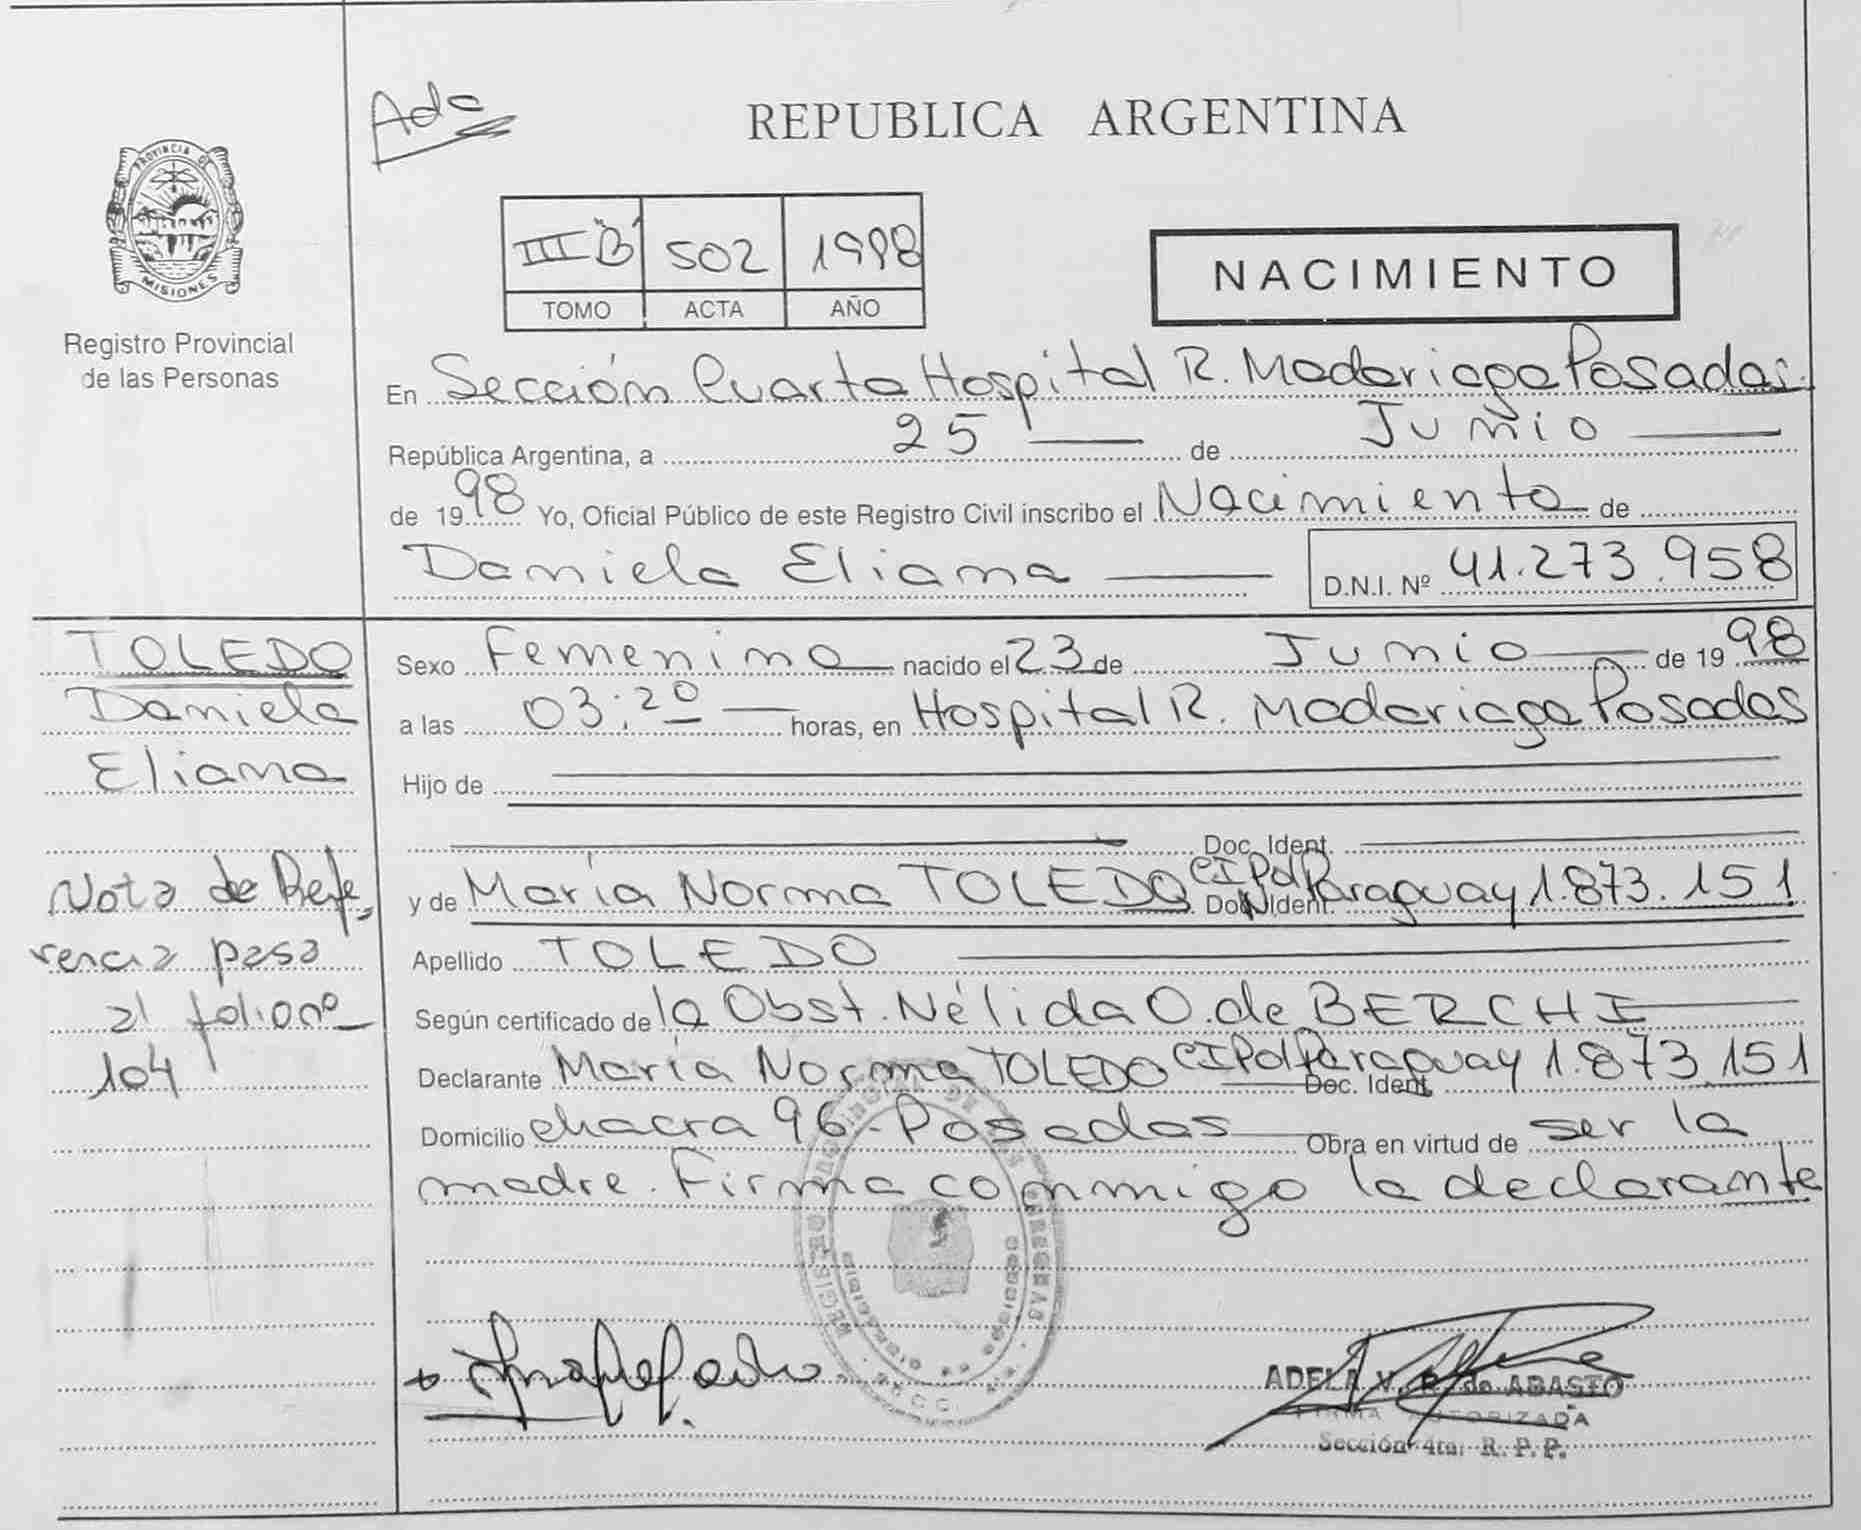 Ada
REPUBLICA ARGENTINA
PROVINCIA DE
MISIONES
Registro Provincial
de las Personas
III "B" 502 1998
TOMO ACTA AÑO
NACIMIENTO
En Sección Cuarta Hospital R. Madariaga Posadas
República Argentina, a 25 de Junio
de 1998 Yo, Oficial Público de este Registro Civil inscribo el Nacimiento de
Daniela Eliana D.N.I. Nº 41.273.958
TOLEDO
Daniela
Eliana
Nota de Refe-
rencia pasa
al folio nº
104
Sexo Femenino nacido el 23 de Junio de 1998
a las 03:20 horas, en Hospital R. Madariaga Posadas
Hijo de
Doc. Ident.
y de María Norma TOLEDO Doc. Ident. CIPdParaguay 1.873.151
Apellido TOLEDO
Según certificado de la Obst. Nélida O. de BERCHI
Declarante María Norma TOLEDO Doc. Ident. CIPdParaguay 1.873.151
Domicilio chacra 96-Posadas Obra en virtud de ser la
madre. Firma conmigo la declarante
ADELA V. R. de ABASTO
FIRMA AUTORIZADA
Sección 4ta. R. P. P.